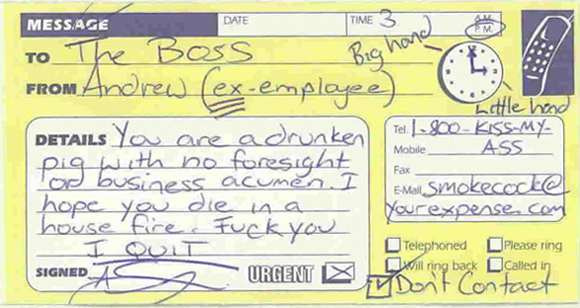 MESSAGE DATE TIME 3 A.M.
P.M.
TO The Boss
Big hand
FROM Andrew (ex-employee)
Little hand
DETAILS You are a drunken
pig with no foresight
or business acumen. I
hope you die in a
house fire. Fuck you
I QUIT
SIGNED
URGENT
Tel. 1-800-KISS-MY-
Mobile ASS
Fax
E-Mail smokecock@
yourexpense.com
Telephoned Please ring
Will ring back Called in
Don't Contact